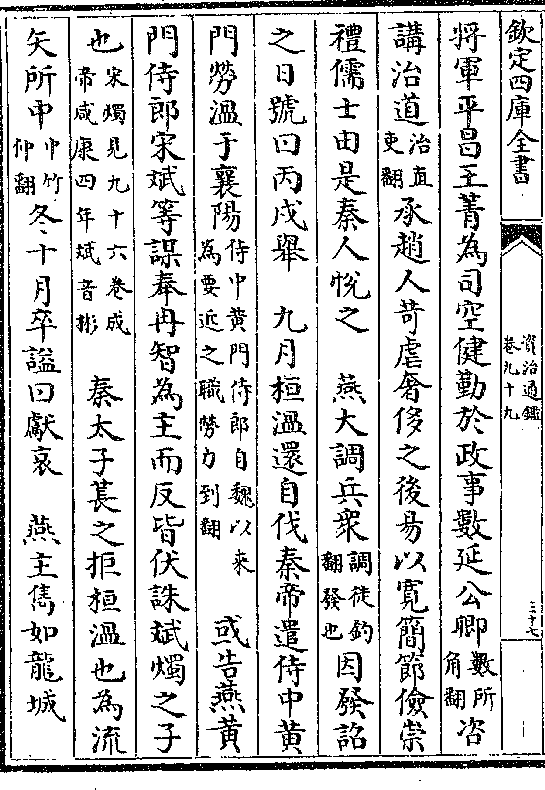 欽定四庫全書
資治通鑑
卷九十九
三十七
將軍平昌王菁為司空健勤於政事數延公卿數所角翻咨
講治道治直吏翻承趙人苛虐奢侈之後易以寛簡節儉崇
禮儒士由是秦人悅之　燕大調兵衆調徒釣翻發也因發詔
之日號曰丙戌舉　九月桓溫還自伐秦帝遣侍中黃
門勞溫于襄陽侍中黃門侍郎自魏以來為要近之職勞力到翻　或告燕黃
門侍郎宋斌等謀奉冉智為主而反皆伏誅斌燭之子
也宋燭見九十六卷成帝咸康四年斌音彬　秦太子萇之拒桓溫也為流
矢所中中竹仲翻冬十月卒諡曰獻哀　燕主儁如龍城